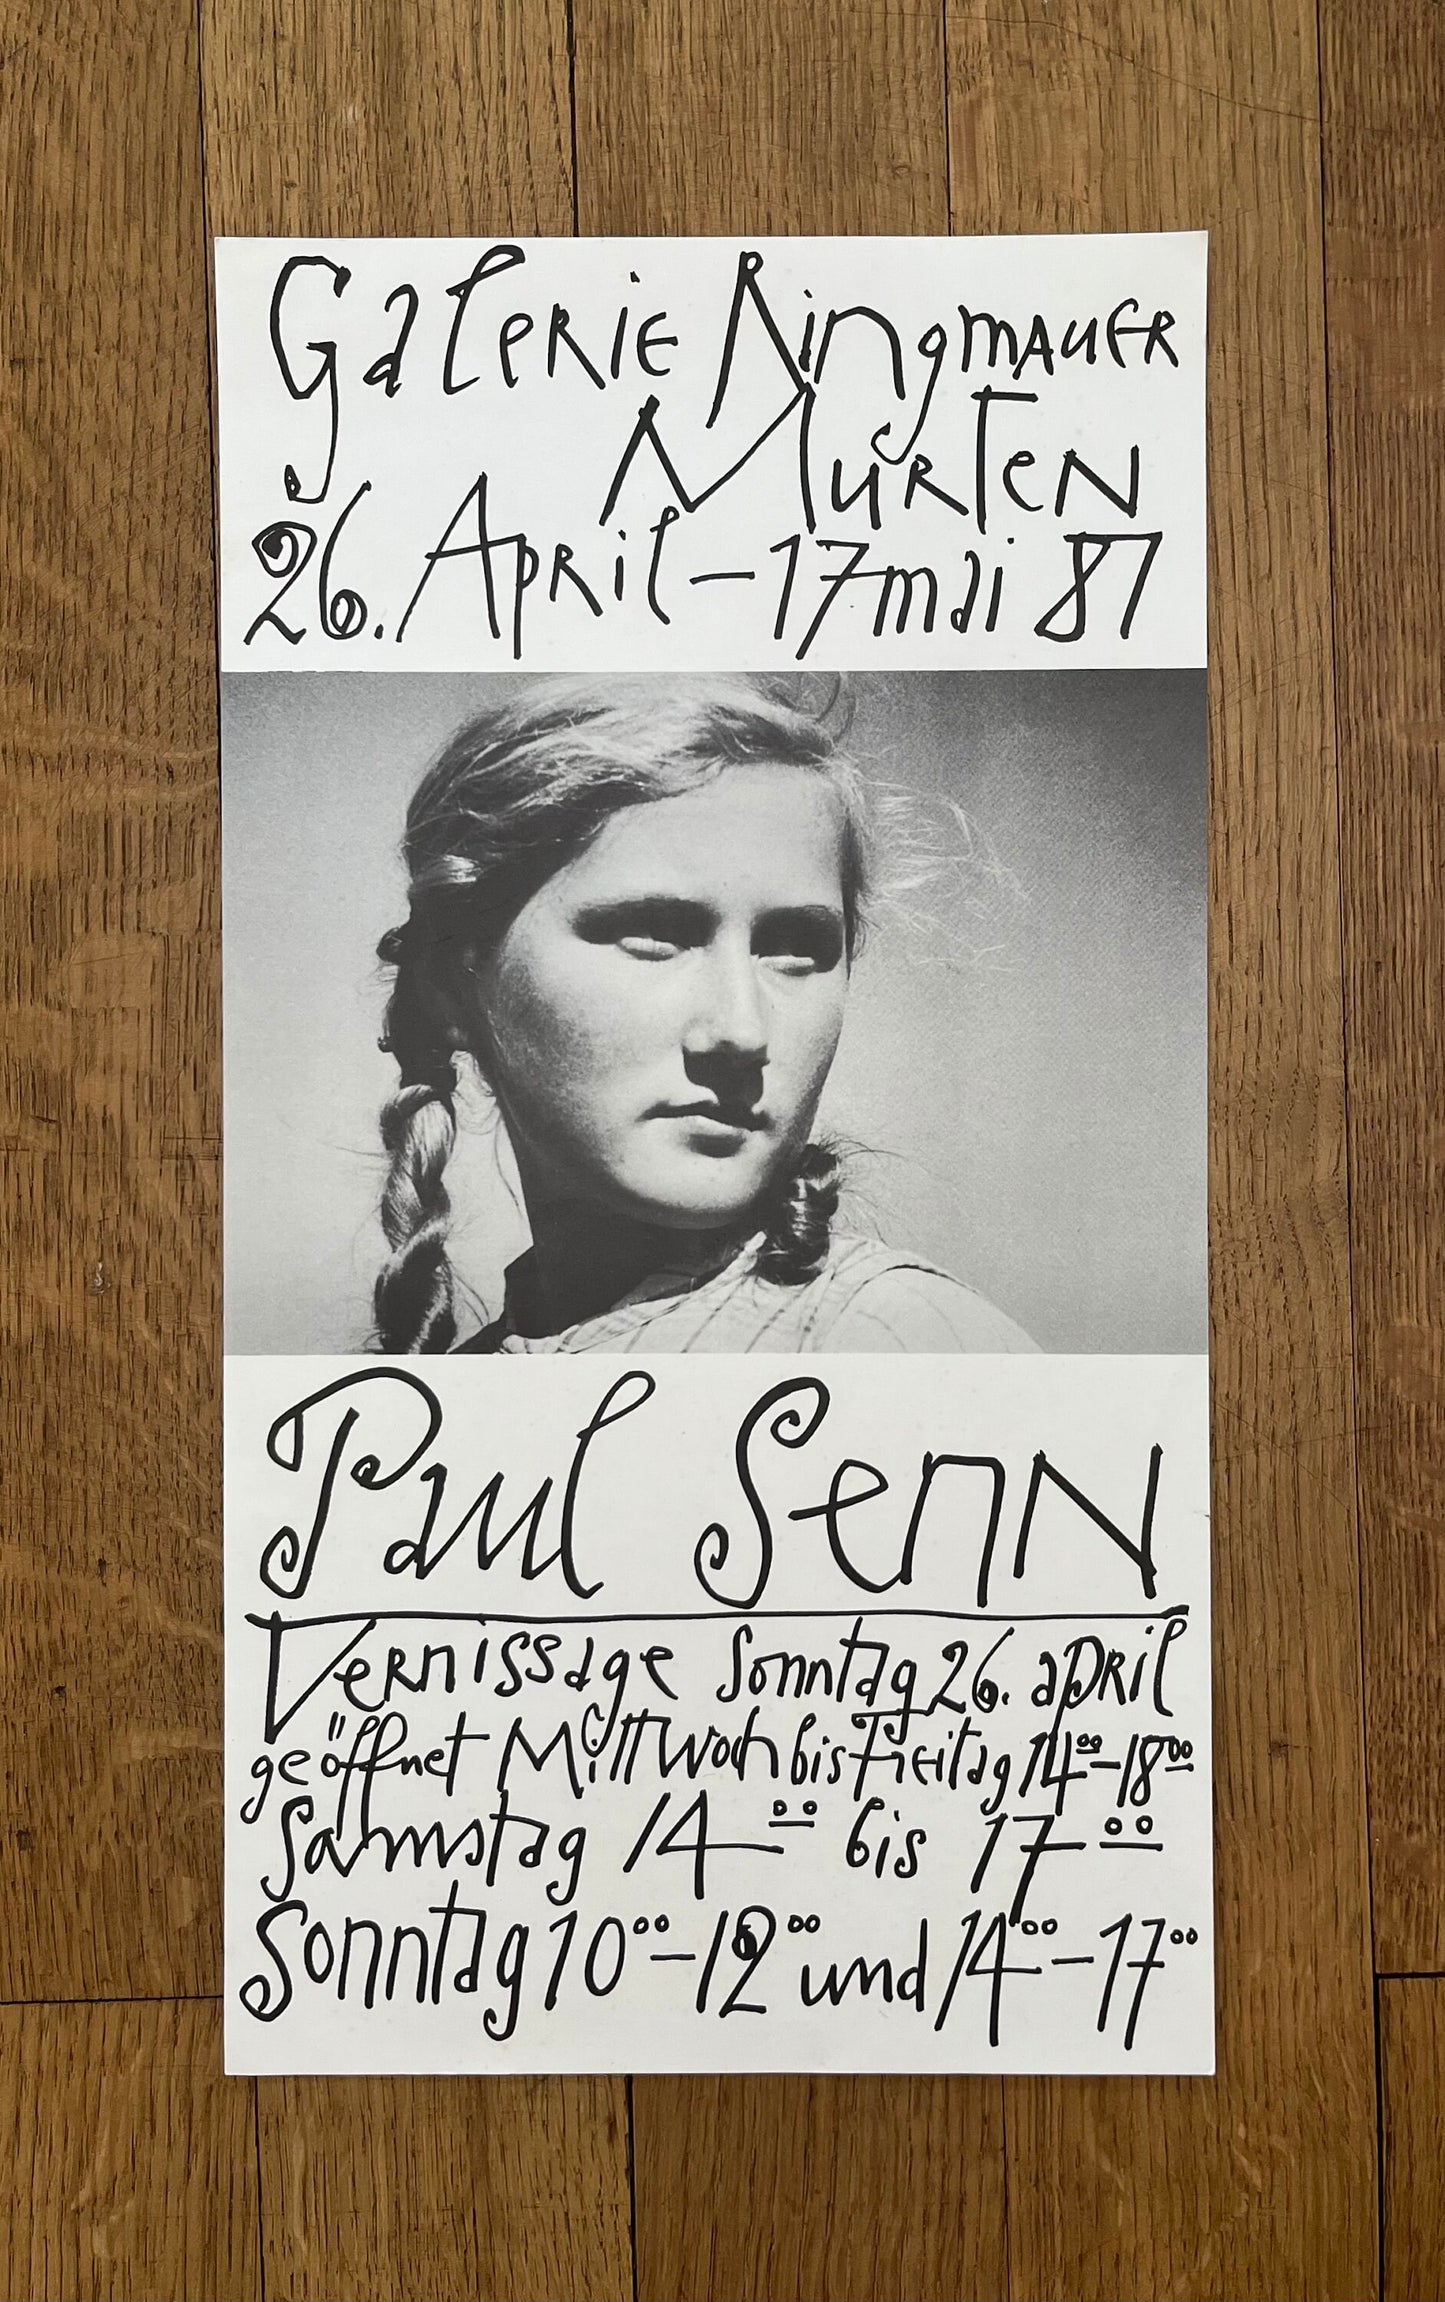 Galerie Ringmauer
Murten
26. April – 17 mai 87
Paul Senn
Vernissage Sonntag 26. april
geöffnet Mittwoch bis Freitag 14⁰⁰–18⁰⁰
Samstag 14⁰⁰ bis 17⁰⁰
Sonntag 10⁰⁰–12⁰⁰ und 14⁰⁰–17⁰⁰